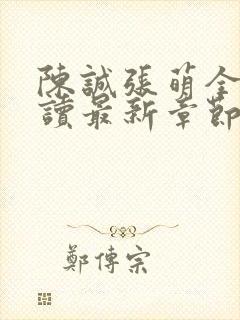 陳誠張萌全
讀最新章節
鄭傳宗